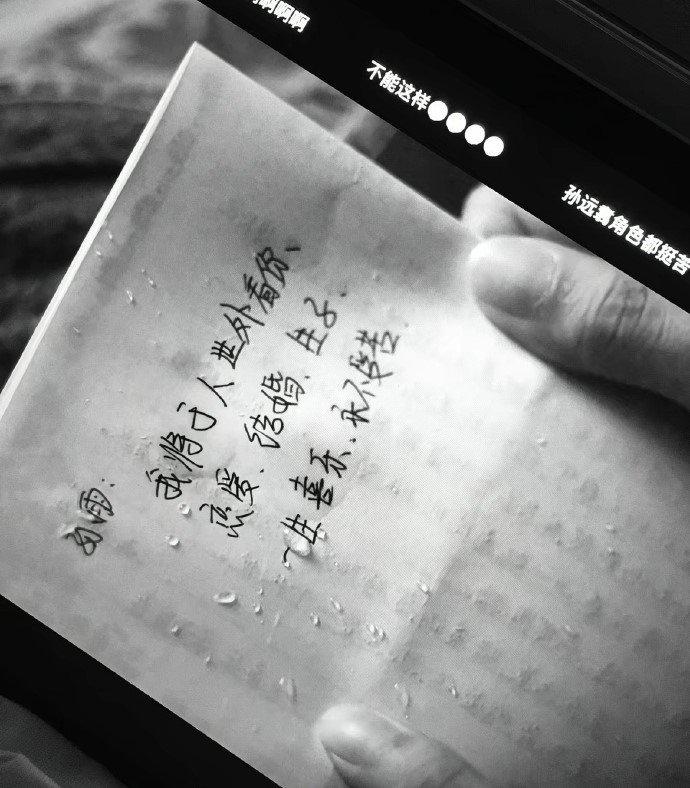 啊啊啊
不能这样●●●●
孙远翥角色都挺苦
雨：
我将于人世外看你、
恋爱、结婚、生子、
一生喜乐、永不受苦.